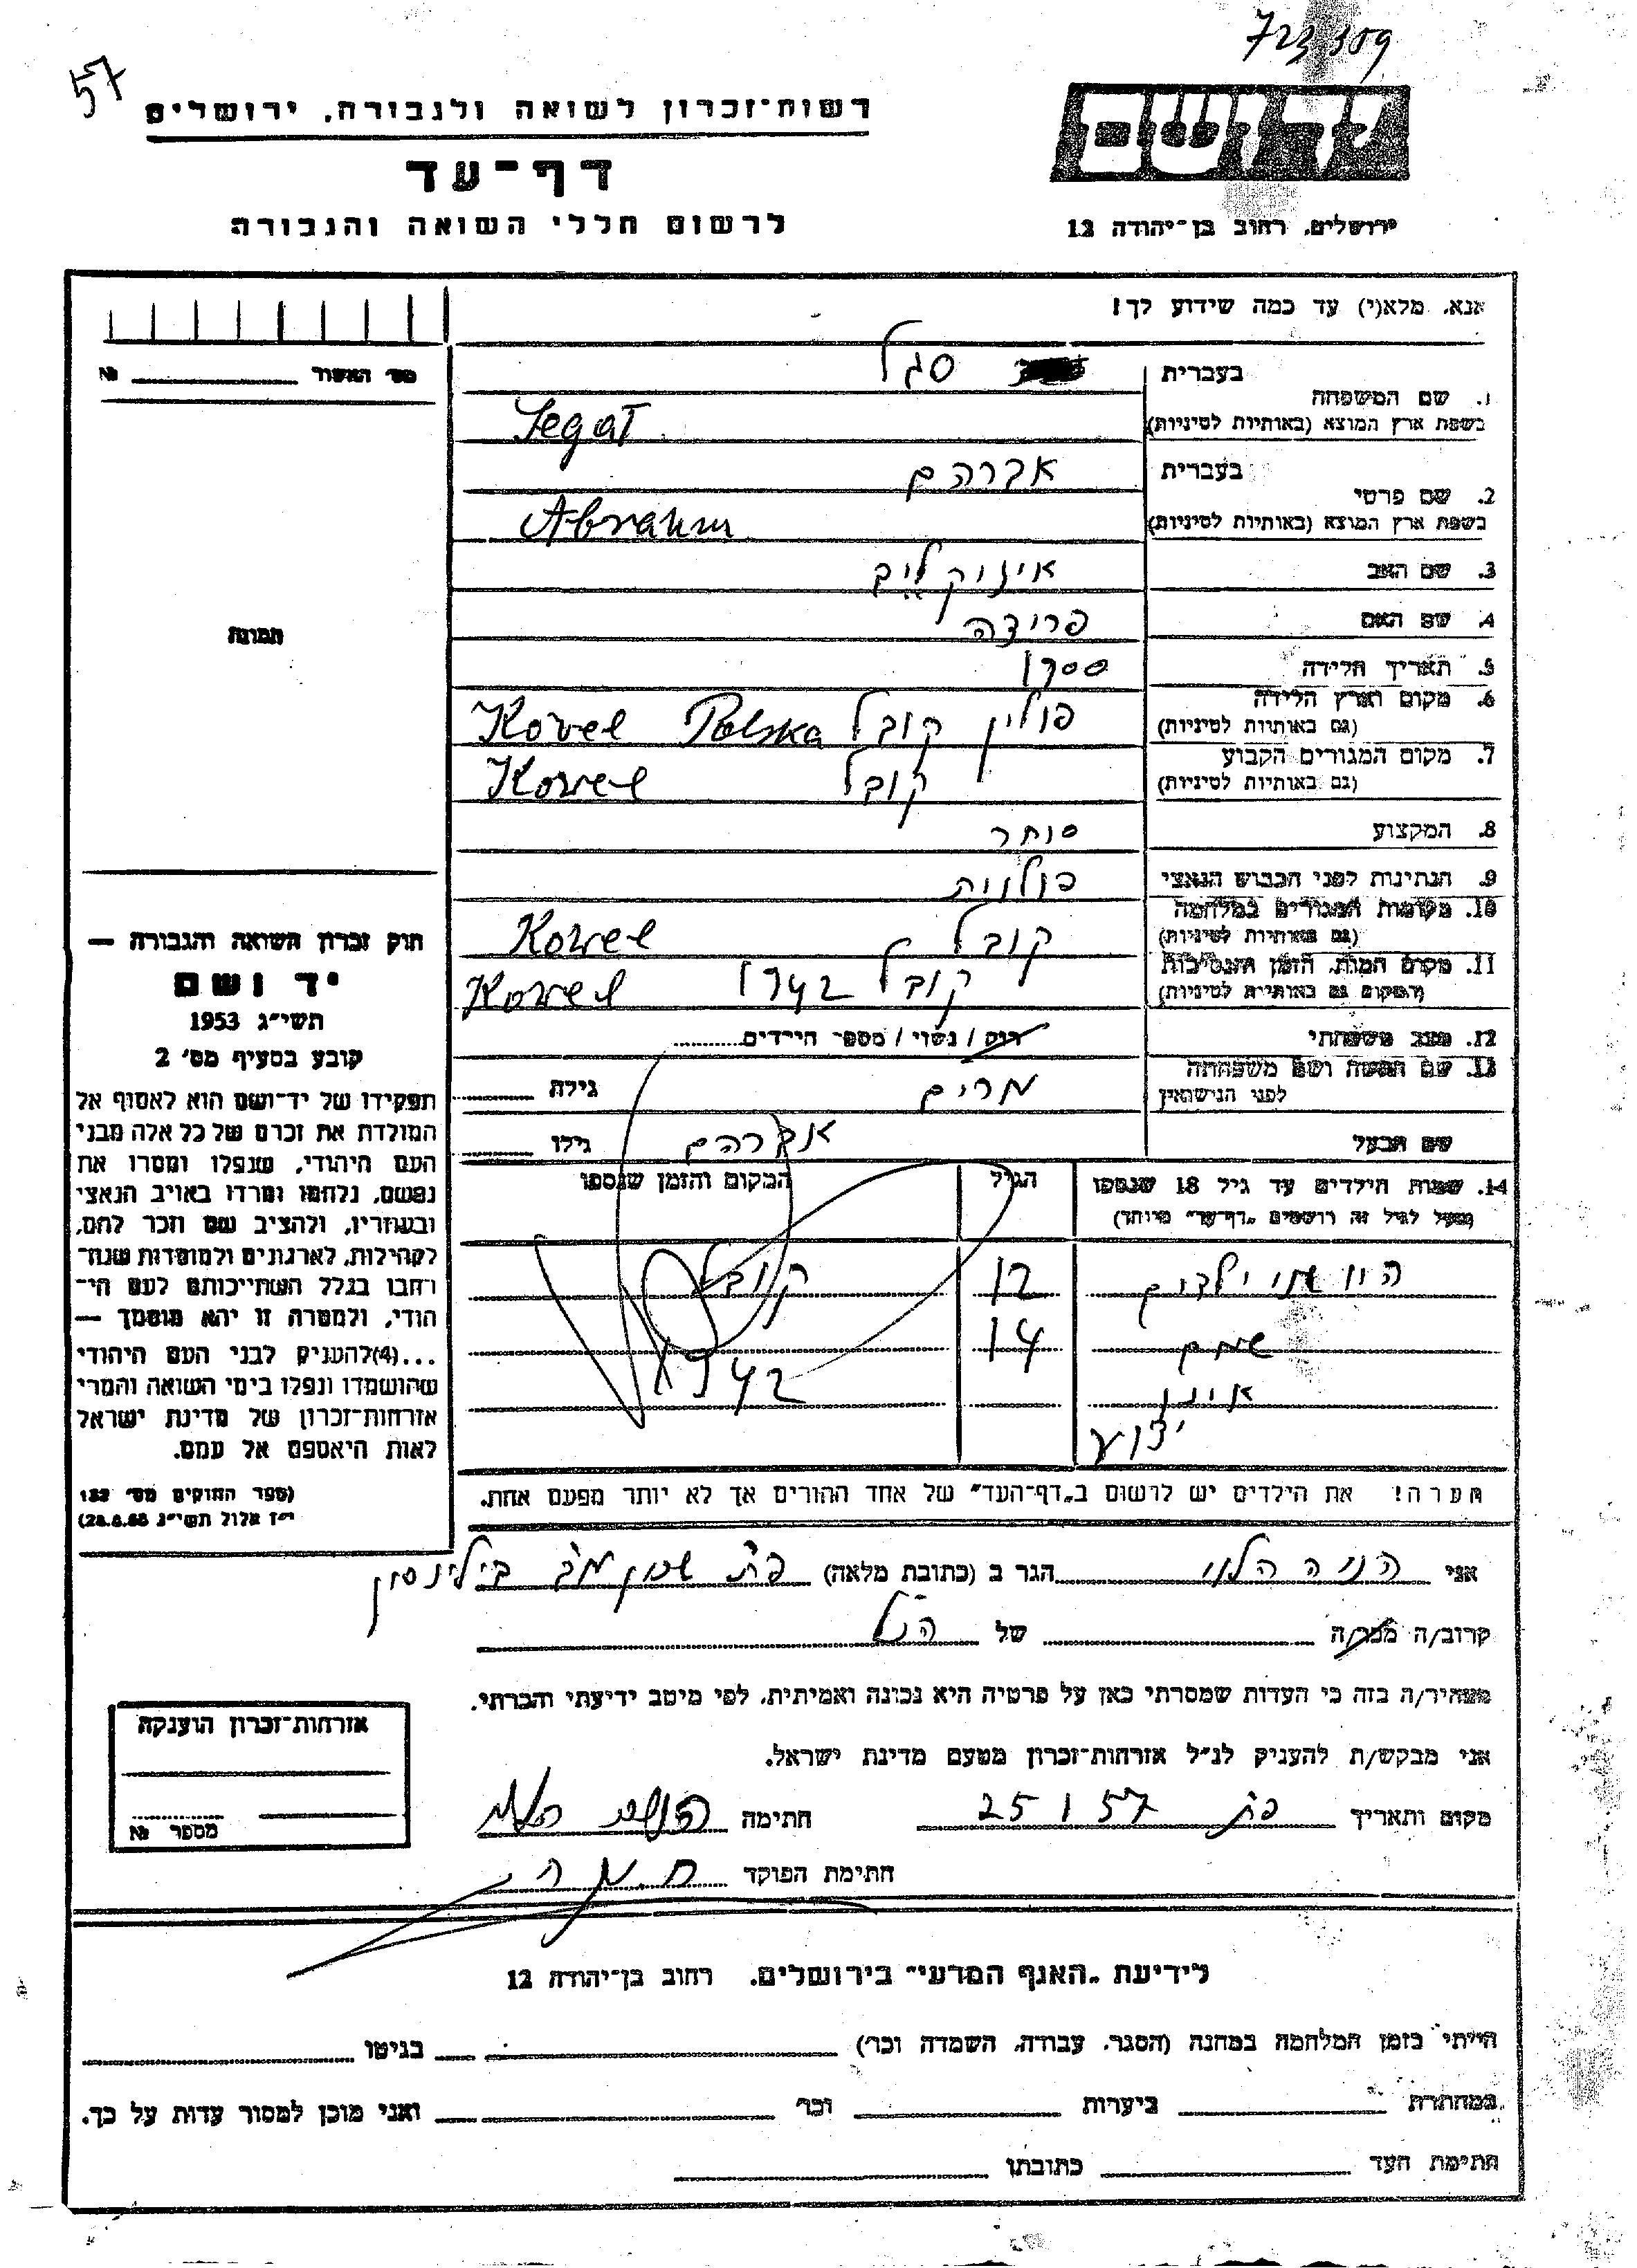 723309
57
רשות־זכרון לשואה ולגבורה, ירושלים
דף־עד
לרשום חללי השואה והגבורה
יד ושם
ירושלים, רחוב בן־יהודה 12
אנא, מלא(י) עד כמה שידוע לך!
מס׳ האשור № 
תמונה
1. שם המשפחה
בעברית סגל
בשפת ארץ המוצא (באותיות לטיניות) Segal
2. שם פרטי
בעברית אברהם
בשפת ארץ המוצא (באותיות לטיניות) Abraham
3. שם האב ליב
4. שם האם פרידה
5. תאריך הלידה 1900
6. מקום וארץ הלידה פולין קובל Polska Kovel
(גם באותיות לטיניות)
7. מקום המגורים הקבוע קובל Kowel
(גם באותיות לטיניות)
8. המקצוע סוחר
9. הנתינות לפני הכבוש הנאצי פולנית
10. מקומות המגורים במלחמה קובל Kowel
(גם באותיות לטיניות)
11. מקום המות, הזמן והנסיבות קובל 1942 Kowel
(המקום גם באותיות לטיניות)
12. מצב משפחתי רווק / נשוי / מספר הילדים
13. שם האשה ושם משפחתה מרים גילה
לפני הנישואין
שם הבעל אברהם גילו
14. שמות הילדים עד גיל 18 שנספו הגיל המקום והזמן שנספו
(מעל לגיל זה רושמים „דף־עד״ מיוחד)
היו שני ילדים 12 קובל
שמם 14 1942
אינו
ידוע
הערה! את הילדים יש לרשום ב„דף־העד״ של אחד ההורים אך לא יותר מפעם אחת.
חוק זכרון השואה והגבורה —
יד ושם
תשי״ג 1953
קובע בסעיף מס׳ 2
תפקידו של יד־ושם הוא לאסוף אל
המולדת את זכרם של כל אלה מבני
העם היהודי, שנפלו ומסרו את
נפשם, נלחמו ומרדו באויב הנאצי
ובעוזריו, ולהציב שם וזכר להם,
לקהילות, לארגונים ולמוסדות שנח־
רבו בגלל השתייכותם לעם הי־
הודי, ולמטרה זו יהא מוסמך —
...(4) להעניק לבני העם היהודי
שהושמדו ונפלו בימי השואה והמרי
אזרחות־זכרון של מדינת ישראל
לאות היאספם אל עמם.
(ספר החוקים מס׳ 132
י״ז אלול תשי״ג 28.8.53)
אני הניה הלוי הגר ב (כתובת מלאה) פ״ת שכון מב בילינסון
קרוב/ה מכר/ה של הנ״ל
מצהיר/ה בזה כי העדות שמסרתי כאן על פרטיה היא נכונה ואמיתית, לפי מיטב ידיעתי והכרתי.
אני מבקש/ת להעניק לנ״ל אזרחות־זכרון מטעם מדינת ישראל.
מקום ותאריך פת 25 1 57 חתימה
חתימת הפוקד
אזרחות־זכרון הוענקה
מספר №
לידיעת „האגף המדעי״ בירושלים, רחוב בן־יהודה 12
הייתי בזמן המלחמה במחנה (הסגר, עבודה, השמדה וכר׳) בגיטו
במחתרת ביערות וכר ואני מוכן למסור עדות על כך.
חתימת העד כתובתו